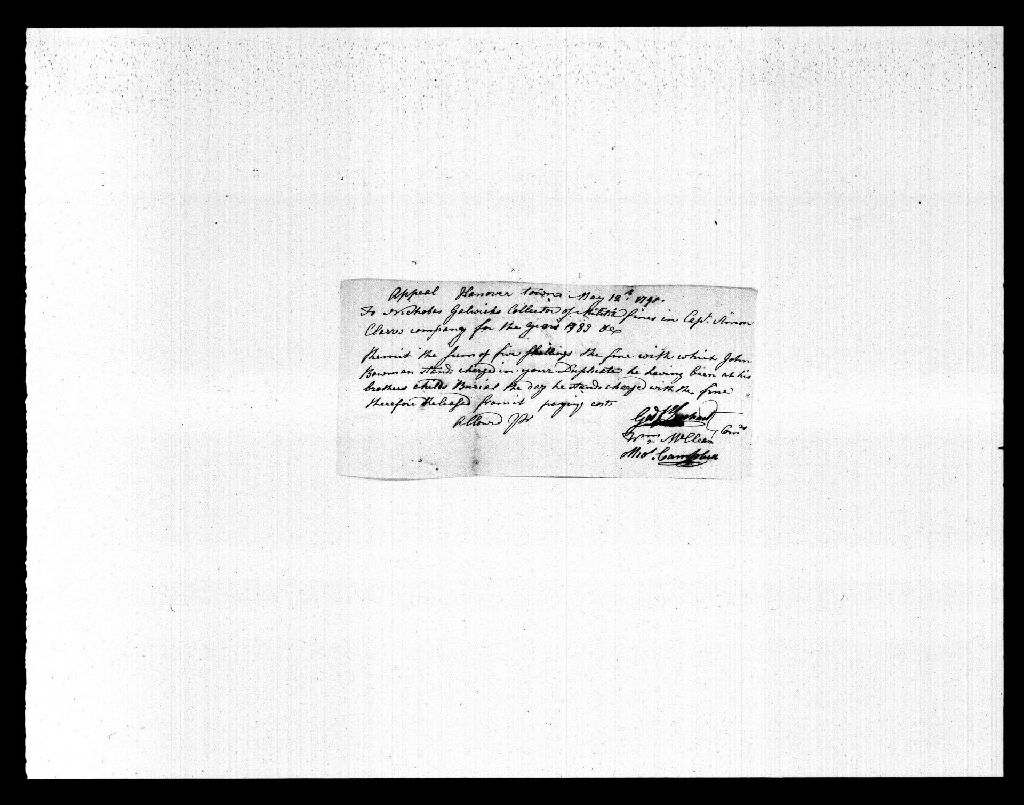 Appeal Hanover town May 12th 1790.
To Nicholas Gelwicks Collector of Militia fines in Capt. Simon
Clears company for the Year 1783 &c
Remit the sum of five shillings the fine with which John
Bowman stands charged in your Duplicate he having been at his
brothers childs Burial the day he stands charged with the fine
therefore Released from it paying costs
allowd pr
Wm. McClean Comrs